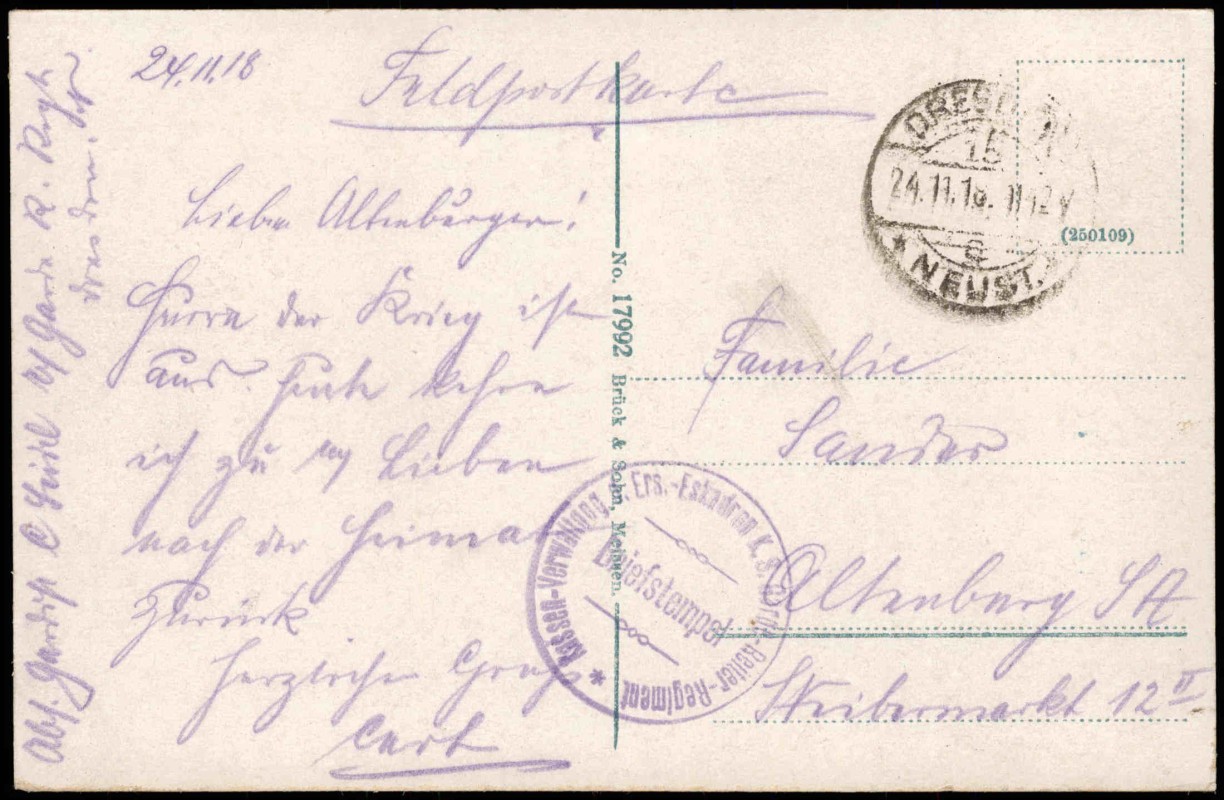 24.11.18
Feldpostkarte
Liebe Altenburger!
Hurra der Krieg ist
aus. Heute kehre
ich zu Lieben
nach der Heimat
Zurück
Herzlichen Gruß
Curt
Abs. Gardist C
Garde R. Regt.
Dresden.
DRESD
15
24.11.18. 11-12V
a
* NEUST.
(250109)
No. 17992 Brück & Sohn, Meißen.
Familie
Sander
Altenburg SA
Weibermarkt 12 II
* Kassen-Verwaltung Ers.-Eskadron K.S. Garde-Reiter-Regiment
Briefstempel